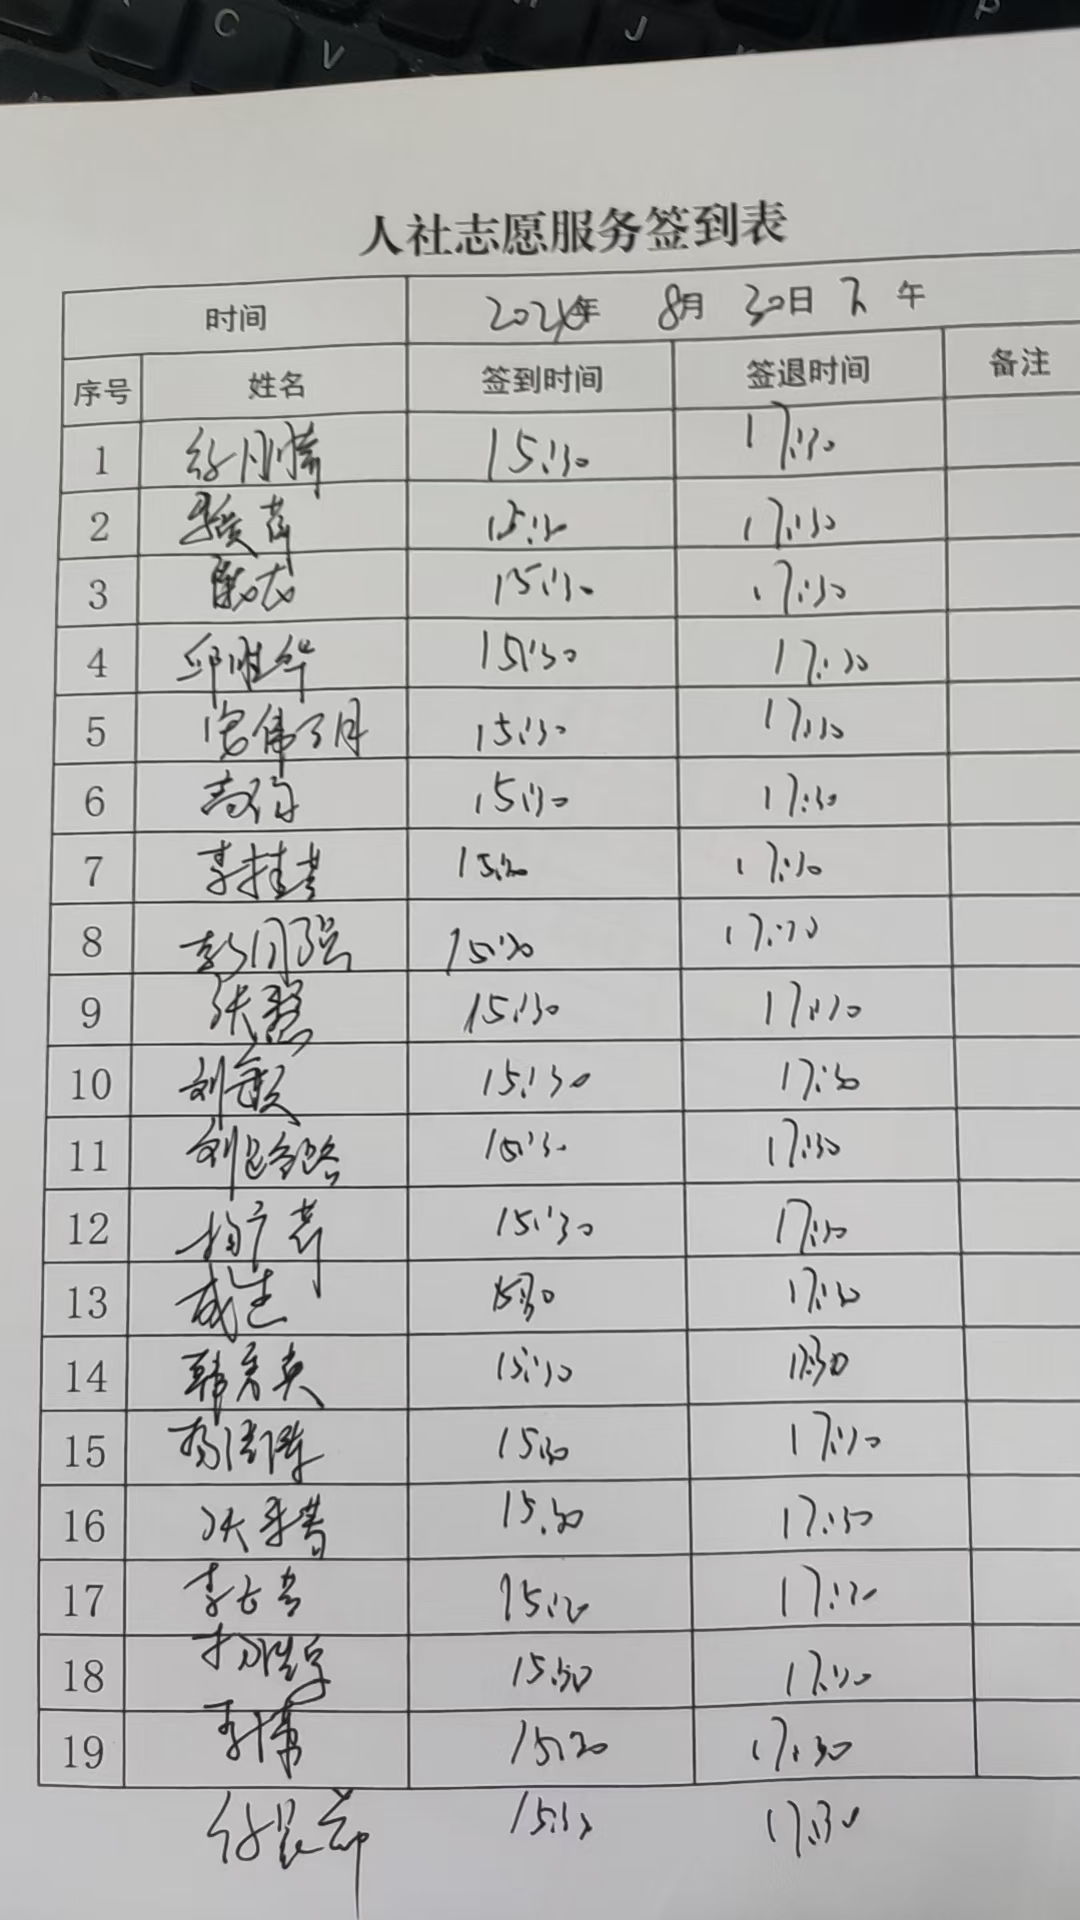 C V J P
人社志愿服务签到表
时间 2024年 8月 30日 下 午
序号 姓名 签到时间 签退时间 备注
1 15:30 17:30
2 15:30 17:30
3 15:30 17:30
4 邱胜华 15:30 17:30
5 15:30 17:30
6 15:30 17:30
7 李桂芳 15:30 17:30
8 彭月强 15:30 17:30
9 张慧 15:30 17:30
10 刘敏 15:30 17:30
11 刘路路 15:30 17:30
12 15:30 17:30
13 15:30 17:30
14 韩秀英 15:30 17:30
15 15:30 17:30
16 15:30 17:30
17 15:30 17:30
18 15:30 17:30
19 李博 15:30 17:30
15:30 17:30